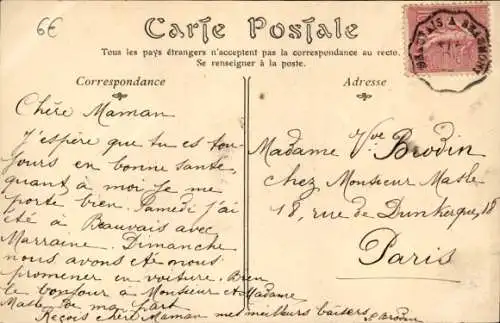 6€
Carte Postale
Tous les pays étrangers n'acceptent pas la correspondance au recto.
Se renseigner à la poste.
Correspondance
Adresse
BEAUVAIS A BEAUMONT
Chère Maman
J'espère que tu es tou-
jours en bonne santé,
quant à moi je me
porte bien. Samedi j'ai
été à Beauvais avec
Marraine. Dimanche
nous avons été nous
promener en voiture. Bien
le bonjour à Monsieur et Madame
de ma part
Reçois chère Maman mes meilleurs baisers
Madame Vve Brodin
chez Monsieur
18, rue de Dunkerque, 18
Paris